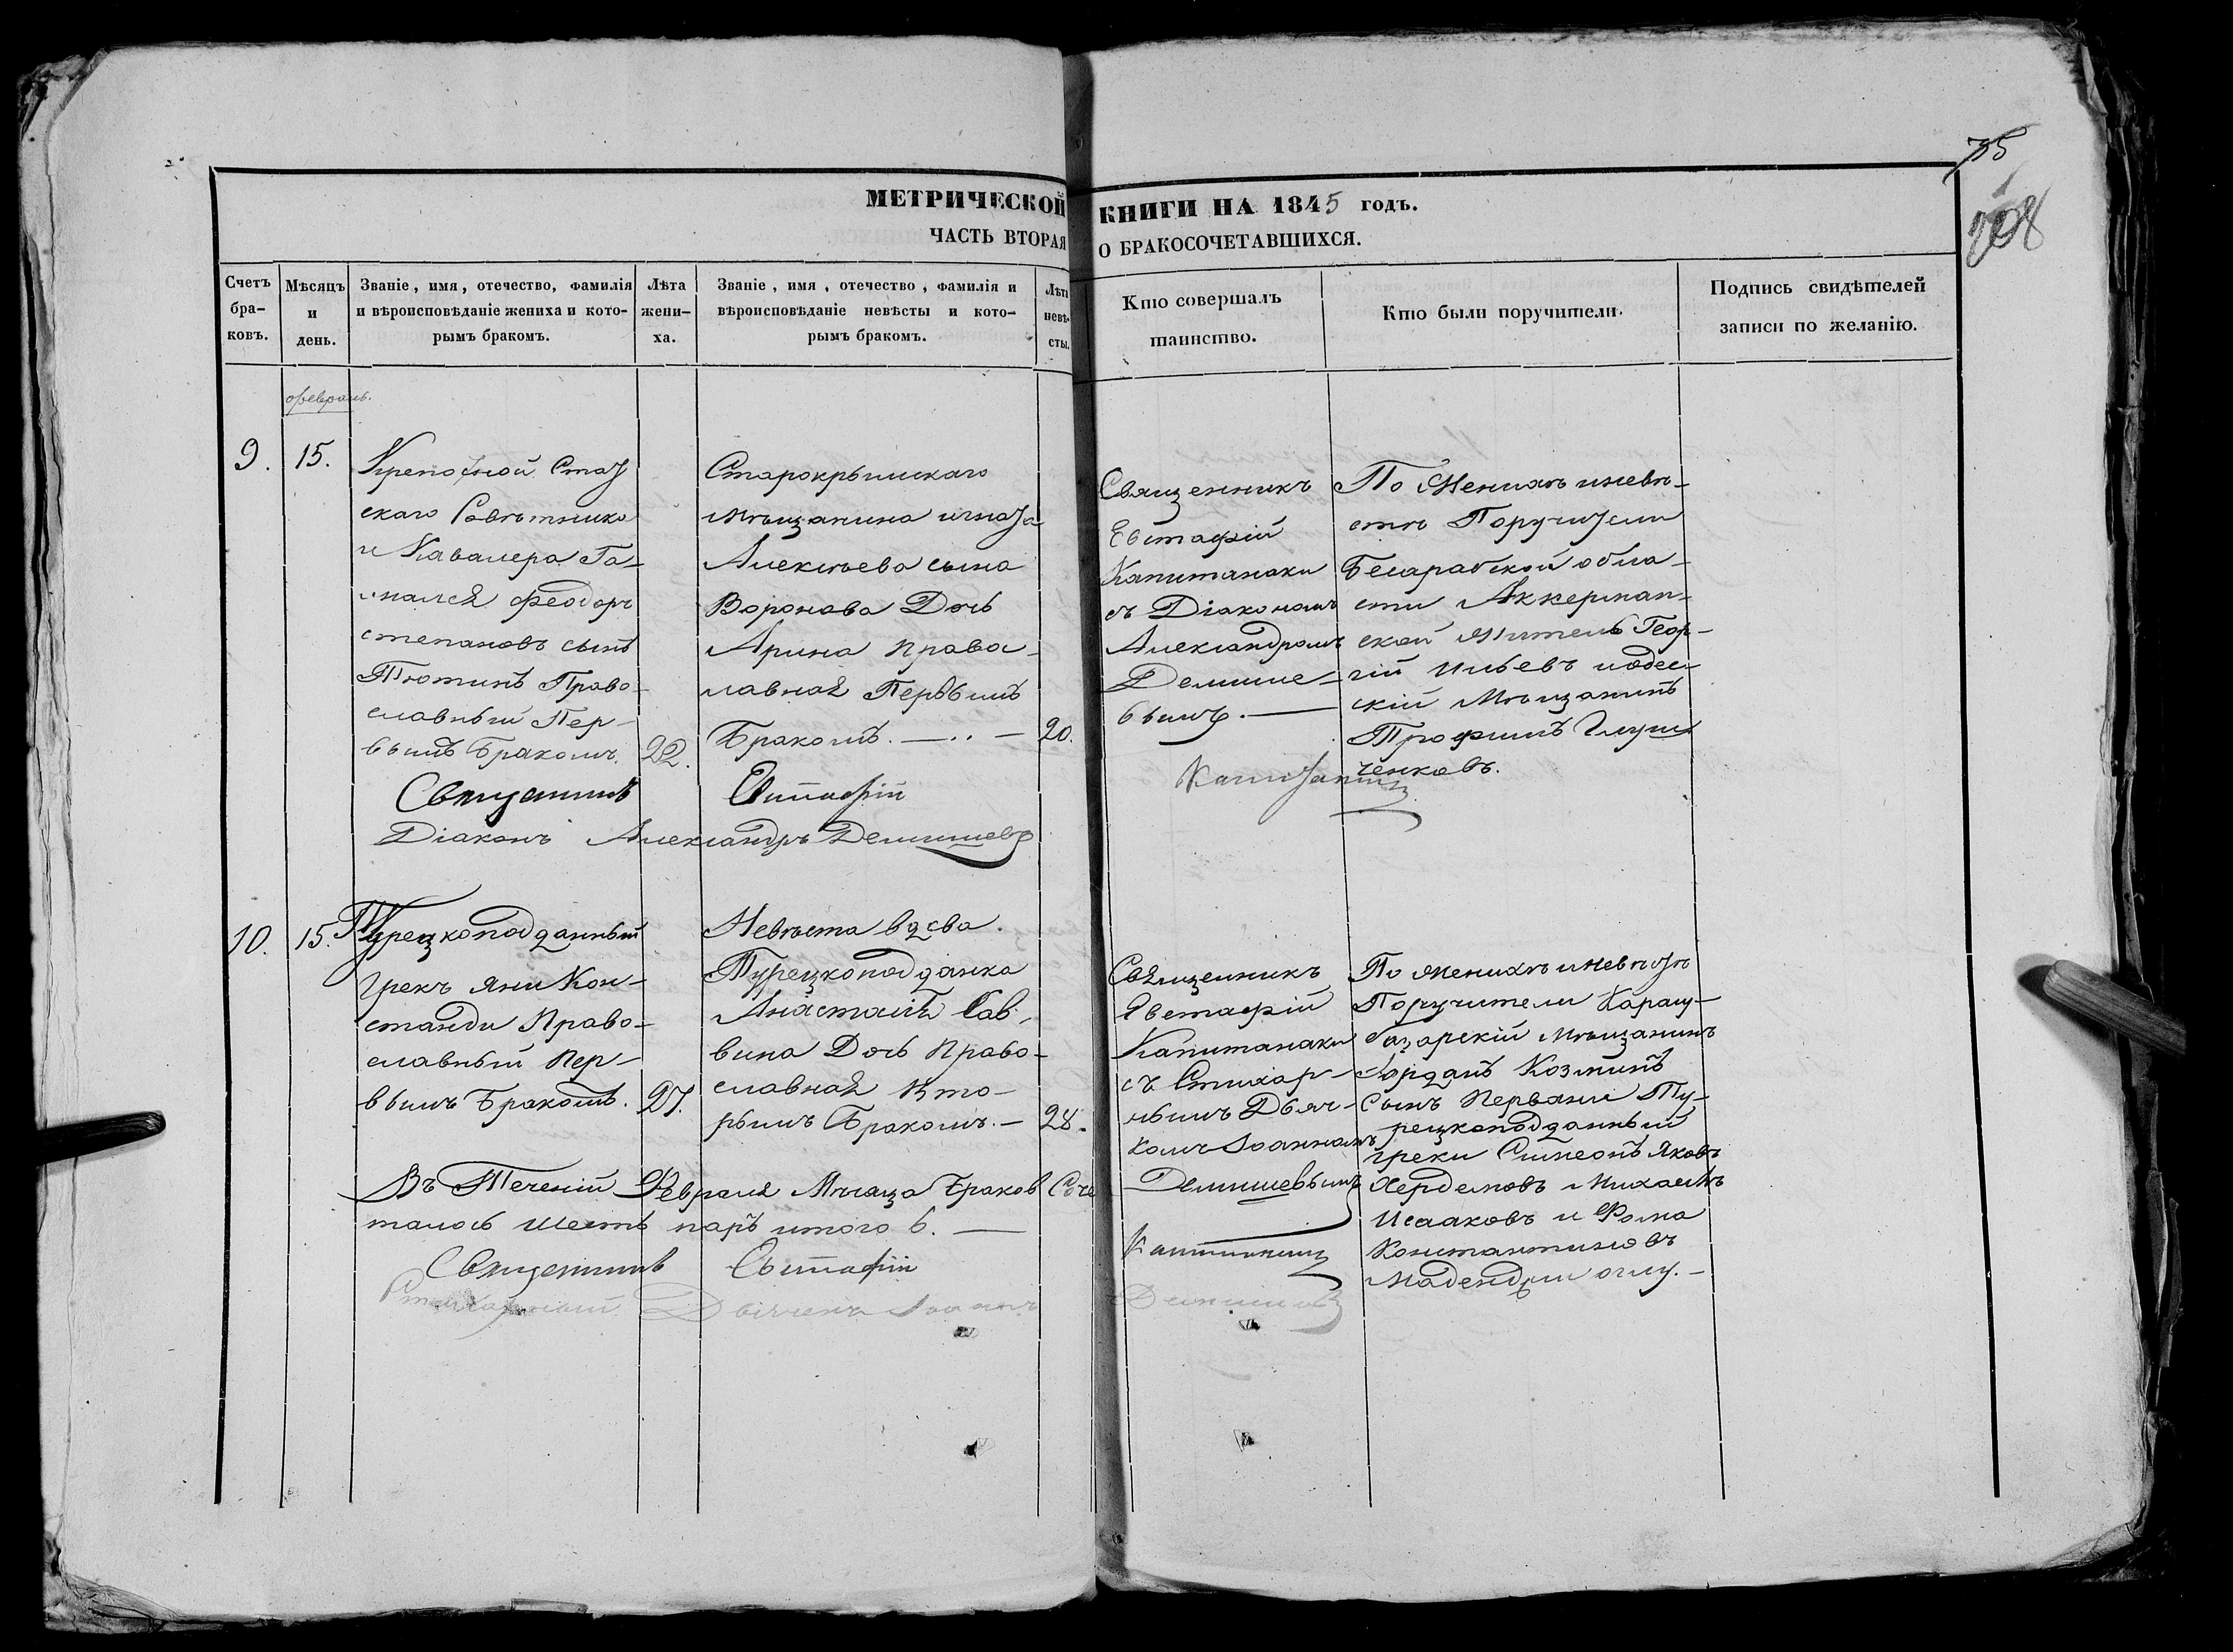 75
МЕТРИЧЕСКОЙ КНИГИ НА 1845 годъ.
ЧАСТЬ ВТОРАЯ О БРАКОСОЧЕТАВШИХСЯ.
Счетъ бра-ковъ.
Мѣсяцъ и день.
Званіе, имя, отечество, фамилія и вѣроисповѣданіе жениха и кото-рымъ бракомъ.
Лѣта жени-ха.
Званіе, имя, отечество, фамилія и вѣроисповѣданіе невѣсты и кото-рымъ бракомъ.
Лѣта невѣ-сты.
Кто совершалъ таинство.
Кто были поручители.
Подпись свидѣтелей записи по желанію.
февраль.
9.
15.
Крепосной Стат
скаго Совѣтника
и Кавалера Га-
Феодоръ
степановъ сынъ
Тютинъ Право-
славный Пер-
вымъ Бракомъ.
22.
Старокрымскаго
мѣщанина
Алексѣева сына
Воронова Дочь
Арина Право-
лавная Первымъ
Бракомъ.
20.
Священникъ
Евстафій
Капитанаки
съ Діакономъ
Александромъ
Демише-
вымъ.
По Женихѣ иневѣ-
стѣ Поручители
Бесарабской обла-
сти Аккерман-
ской житель Геор-
гій Ильевъ иодес-
скій Мѣщанинъ
Трофимъ Глущ
ченковъ.
Священникъ Евстафій Капитанаки
Діаконъ Александръ Демишевъ
10.
15.
Турецкоподданный
грекъ Яни Кон-
станди Право-
славный Пер-
вымъ Бракомъ.
27.
Невѣста вдова.
Турецкоподданка
Анастасія Сав-
вина Дочь Право-
славная Вто-
рымъ Бракомъ. —
28.
Священникъ
Евстафій
Капитанаки
съ Стихар-
нымъ Дьяч-
комъ Іоанномъ
Демишевымъ
По женихѣ иневѣстѣ
Поручители Карасу-
базарскій мѣщанинъ
Іорданъ Козминъ
Сынъ Первани Ту-
рецкоподданный
греки Симеонъ Яковъ
Михаилъ
Исааковъ и Фома
Константиновъ
оглу. —
Въ Теченій Февраля Мѣсяца Браков Соче
талось шесть паръ итого 6. —
Священникъ Евстафій Капитанаки
Стихарный Дьячекъ Іоаннъ Демишевъ